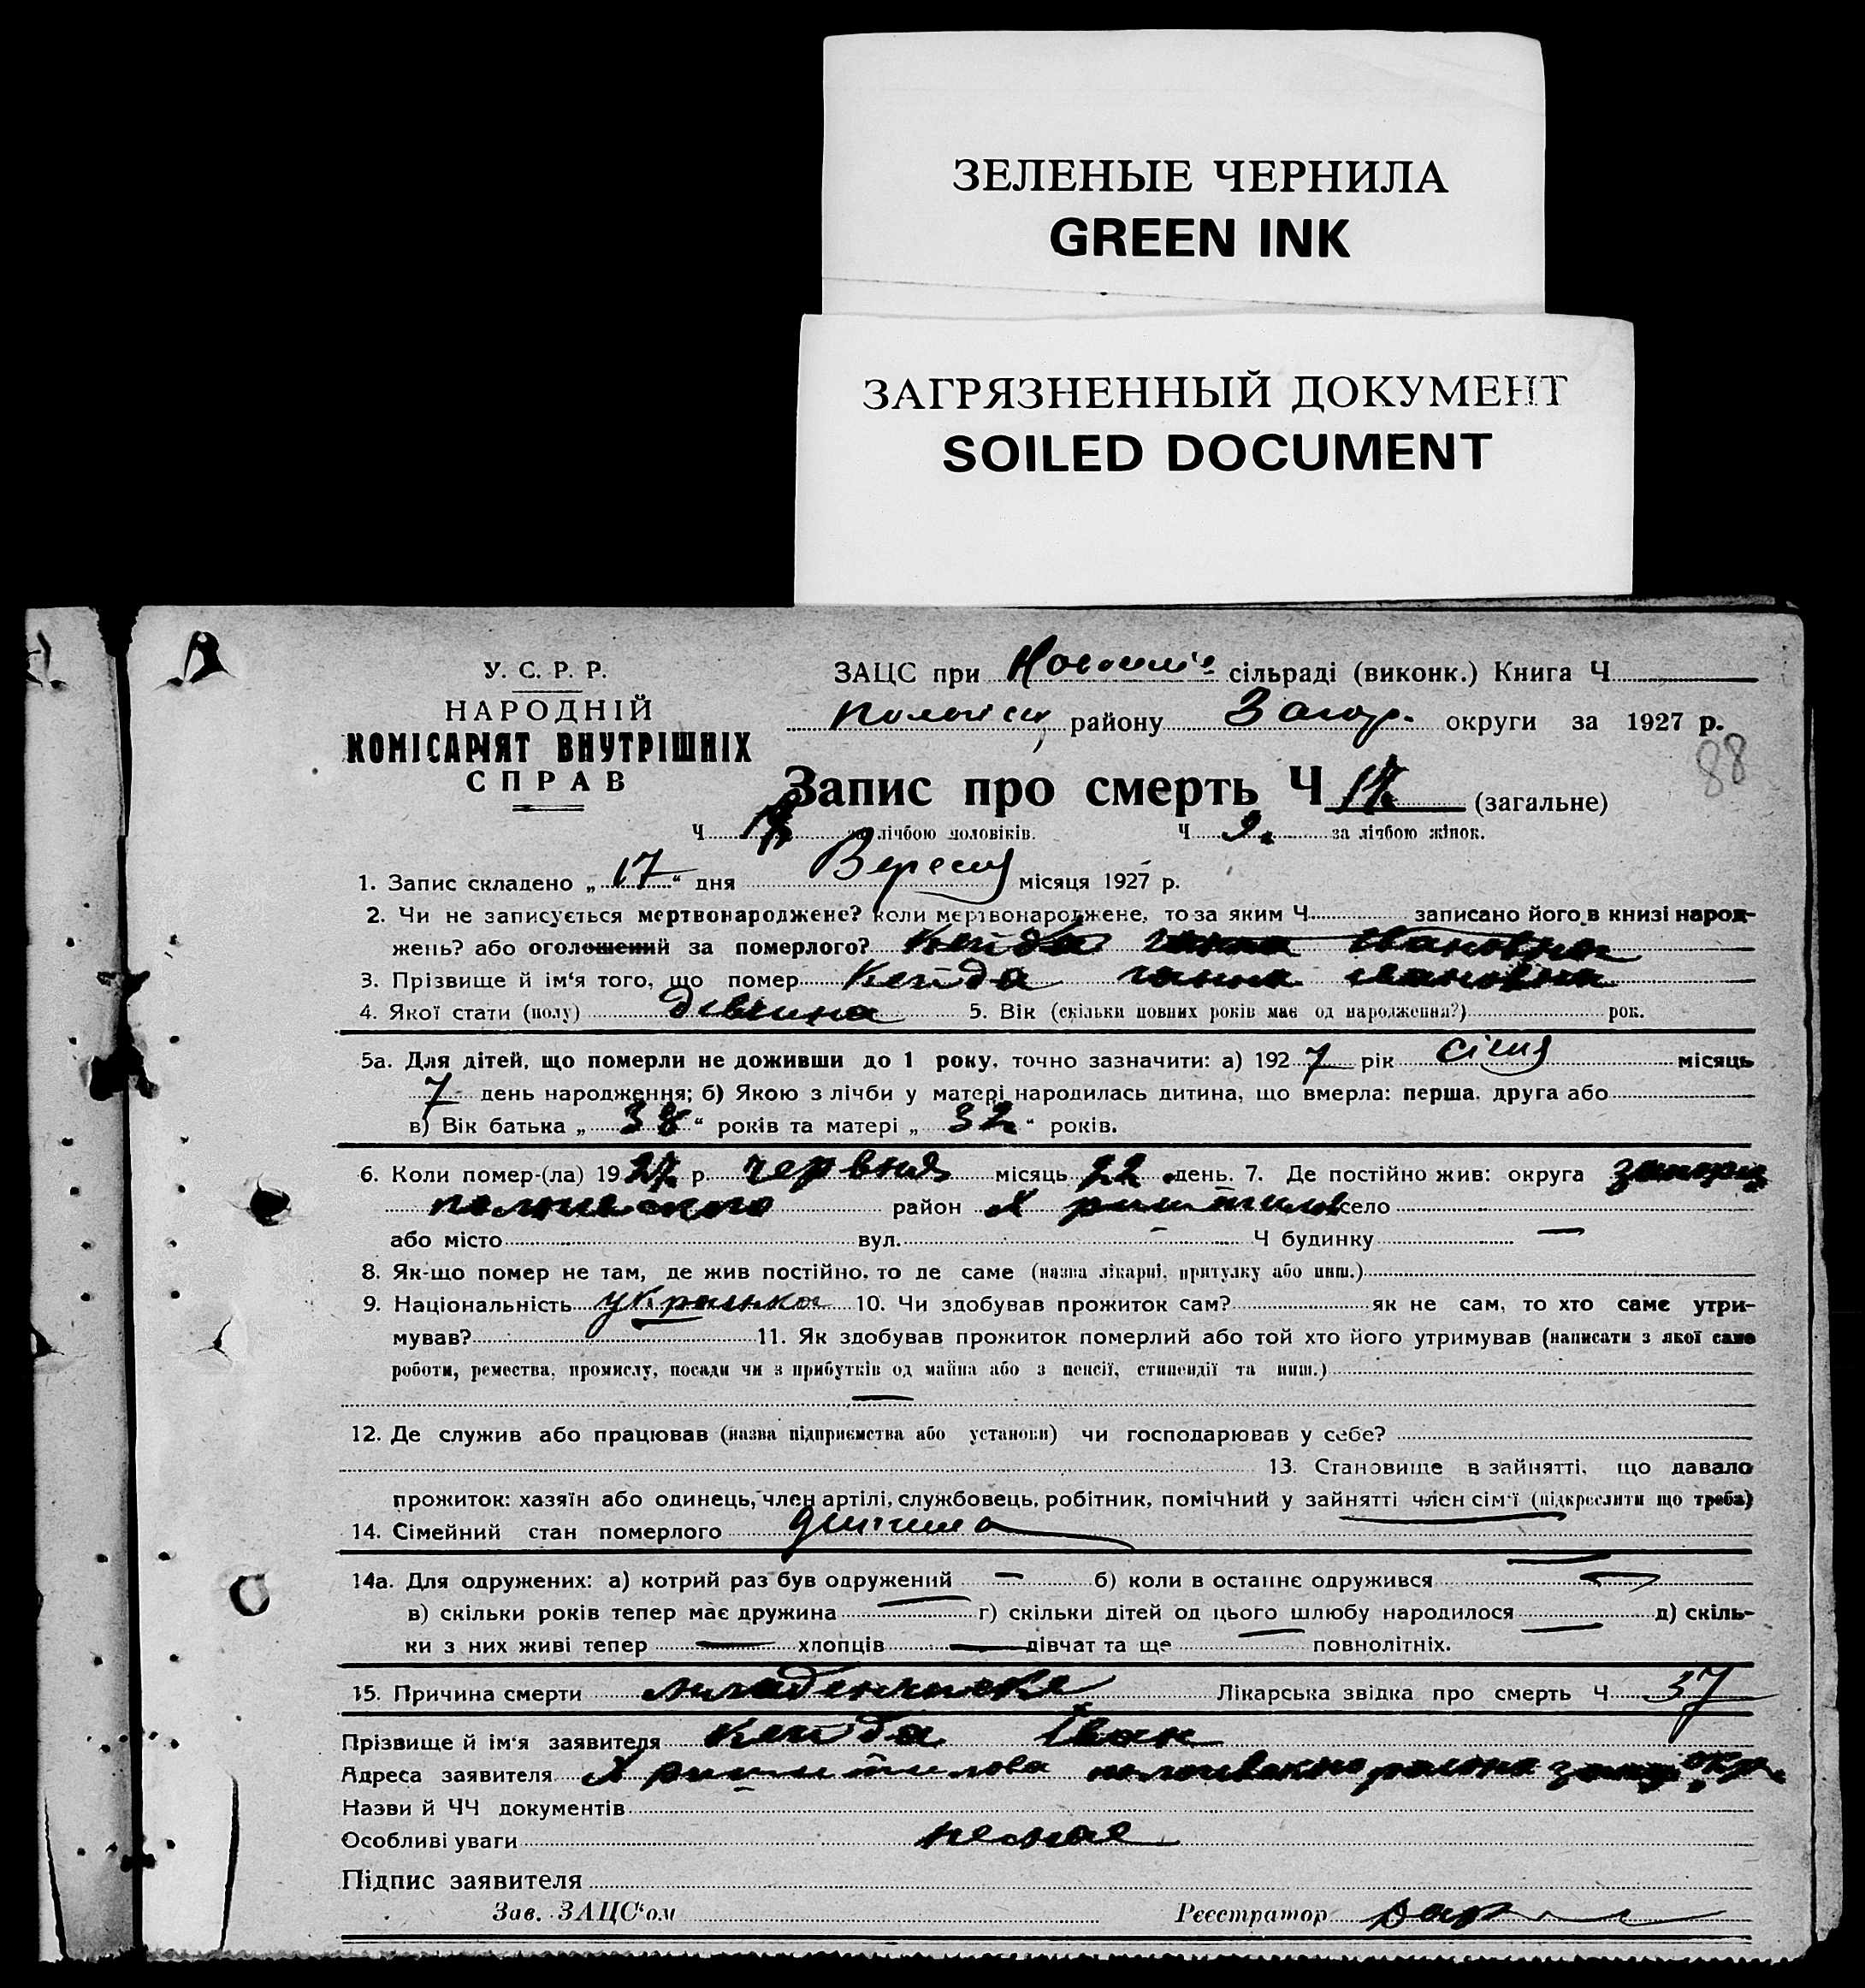 ЗЕЛЕНЫЕ ЧЕРНИЛА
GREEN INK
ЗАГРЯЗНЕННЫЙ ДОКУМЕНТ
SOILED DOCUMENT
У. С. Р. Р.
НАРОДНІЙ
КОМІСАРІЯТ ВНУТРІШНІХ
СПРАВ
ЗАЦС при сільраді (виконк.) Книга Ч
району округи за 1927 р.
88
Запис про смерть Ч 17 (загальне)
Ч за лічбою чоловіків. Ч 9 за лічбою жінок.
1. Запис складено „ 17 “ дня Вересня місяця 1927 р.
2. Чи не записується мертвонароджене? коли мертвонароджене, то за яким Ч записано його в книзі народ-
жень? або оголошений за померлого? Кейда ганна Івановна
3. Прізвище й ім'я того, що помер Кейда ганна Івановна
4. Якої стати (полу) дівчина 5. Вік (скільки повних років має од народження?) рок.
5а. Для дітей, що померли не доживши до 1 року, точно зазначити: а) 192 7 рік січня місяць
7 день народження; б) Якою з лічби у матері народилась дитина, що вмерла: перша, друга або
в) Вік батька „ 38 “ років та матері „ 32 “ років.
6. Коли помер-(ла) 19 27 р. червня місяць 22 день. 7. Де постійно жив: округа
район село
або місто вул. — Ч будинку —
8. Як-що помер не там, де жив постійно, то де саме (назва лікарні, притулку або инш.)
9. Національність українка 10. Чи здобував прожиток сам? як не сам, то хто саме утри-
мував? 11. Як здобував прожиток померлий або той хто його утримував (написати з якої саме
роботи, ремества, промислу, посади чи з прибутків од майна або з пенсії, стипендії та инш.)
—
12. Де служив або працював (назва підприємства або установи) чи господарював у себе?
13. Становище в зайнятті, що давало
прожиток: хазяїн або одинець, член артілі, службовець, робітник, помічний у зайнятті член сім'ї (підкреслити що треба)
14. Сімейний стан померлого дитина
14а. Для одружених: а) котрий раз був одружений — б) коли в останнє одружився —
в) скільки років тепер має дружина — г) скільки дітей од цього шлюбу народилося — д) скіль-
ки з них живі тепер — хлопців — дівчат та ще — повнолітніх.
15. Причина смерти Лікарська звідка про смерть Ч 37
Прізвище й ім'я заявителя Кейда Іван
Адреса заявителя
Назви й ЧЧ документів
Особливі уваги немає
Підпис заявителя
Зав. ЗАЦС'ом Реєстратор